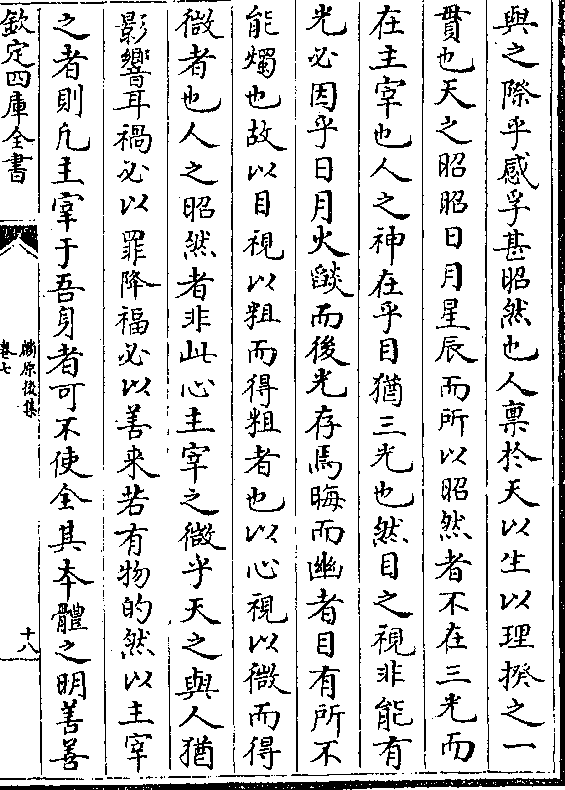 與之際乎感孚甚昭然也人禀於天以生以理揆之一
貫也天之昭昭日月星辰而所以昭然者不在三光而
在主宰也人之神在乎目猶三光也然目之視非能有
光必因乎日月火燄而後光存焉晦而幽者目有所不
能燭也故以目視以粗而得粗者也以心視以微而得
微者也人之昭然者非此心主宰之微乎天之與人猶
影響耳禍必以罪降福必以善来若有物的然以主宰
之者則凡主宰于吾身者可不使全其本體之明善善
欽定四庫全書
勝原後集
卷七
十八